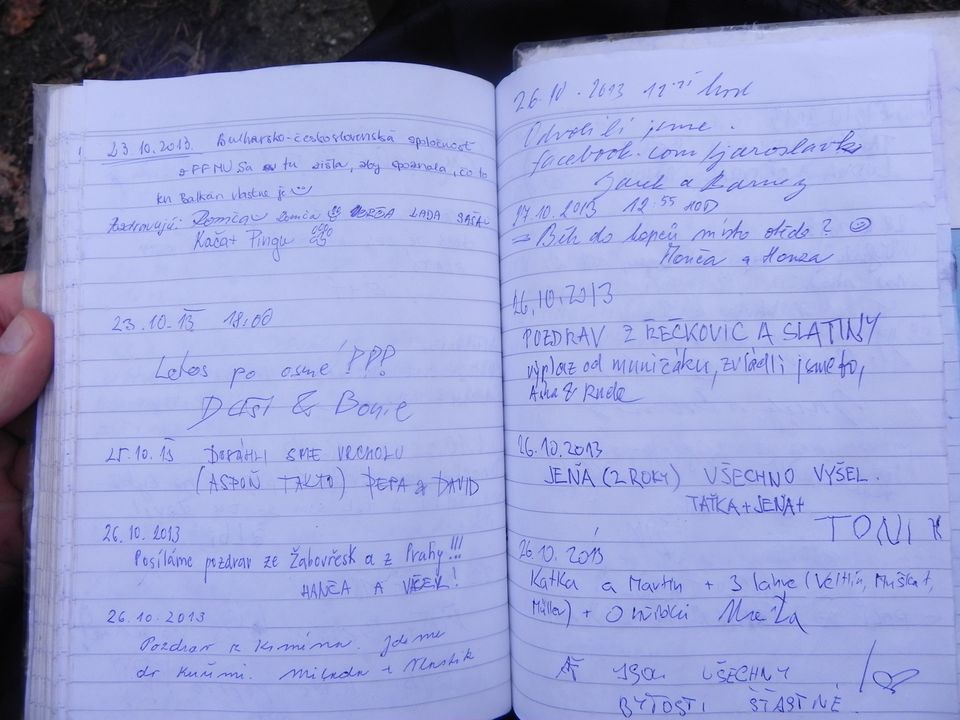 23.10.2013. Bulharsko-československá spoločnosť
z FFMU sa tu zišla, aby spoznala, čo to
ten Balkán vlastne je
Pozdravujú: Domča LADA SAŠA
Kača + Pingu
23.10.13 18:00
Letos po osmé!???
& Bonie
25.10.13 DOTÁHLI SME VRCHOLU
(ASPOŇ TAKTO) PEPA & DAVID
26.10.2013
Posíláme pozdrav ze Žabovřesk a z Prahy!!!
HANČA A VAŠEK!
26.10.2013
Pozdrav z Komína. Jdeme
do Kuřimi. Milada + Vlastik
26.10.2013 hod
Odvolili jsme.
facebook.com/jaroslavk
Jarek a
27.10.2013 12:55 HOD
⇒ Běh do kopců místo oběda?
Monča a Honza
26.10.2013
POZDRAV Z ŘEČKOVIC A SLATINY
výplaz od muničáku, zvládli jsme to,
&
26.10.2013
JEŇA (2 ROKY) VŠECHNO VYŠEL.
TAŤKA + JEŇA +
TONIK
26.10.2013
Katka a Martin + 3 lahve (Veltlín, Muškát,
Müller) +
AŤ JSOU VŠECHNY
BYTOSTI ŠŤASTNÉ.